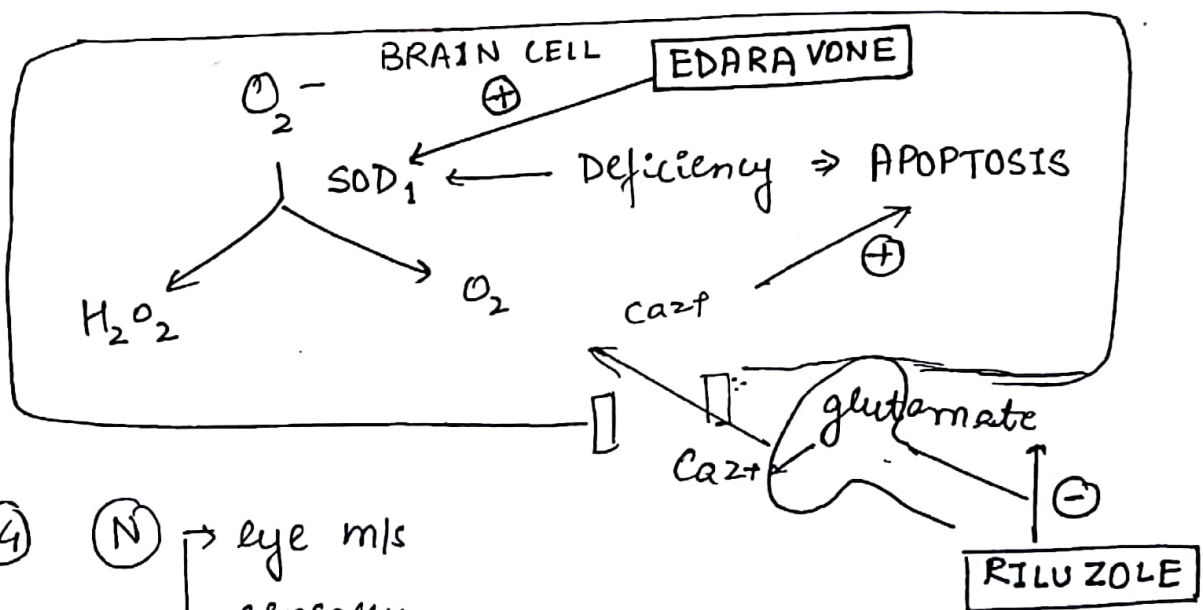 BRAIN CELL
EDARAVONE
O2 -
+
SOD1 ← Deficiency ⇒ APOPTOSIS
+
H2O2
O2
Ca2+
glutamate
Ca2+
-
4 N → eye m/s
RILUZOLE